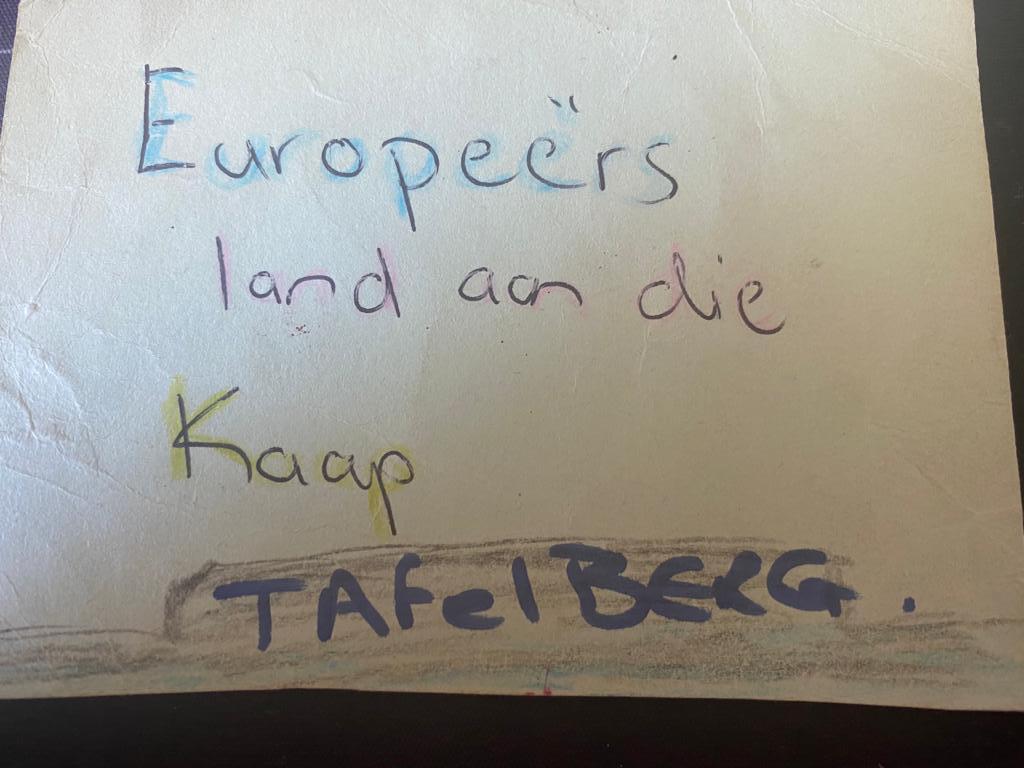 Europeërs
land aan die
Kaap
TAfelBERG.